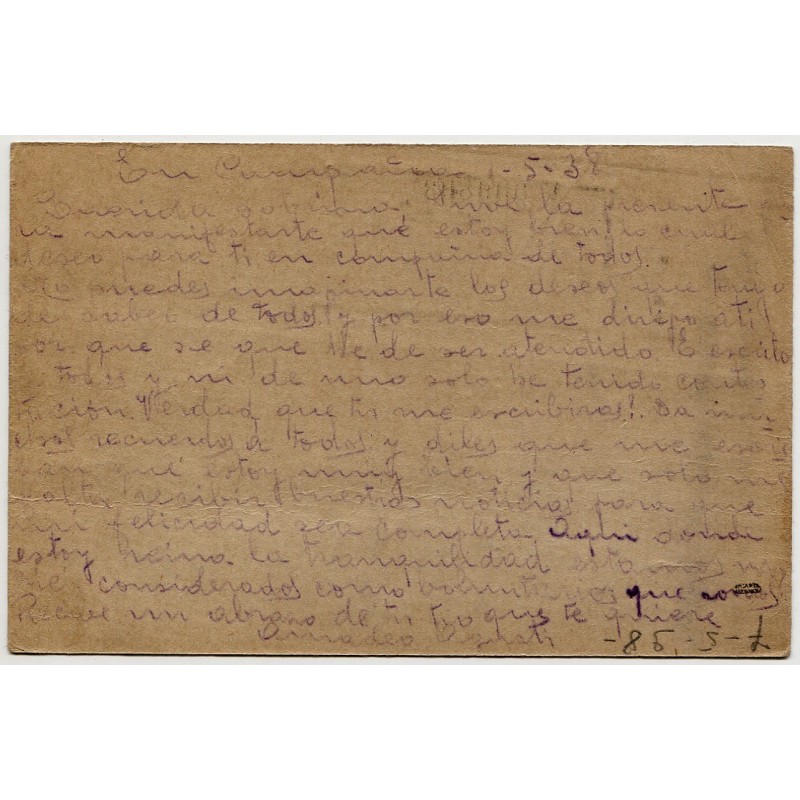 En Campaña 1-5-38
Querida sobrina: Sirve la presente
para manifestarte qué estoy bien lo cual
deseo para ti en compañia de todos.
No puedes imajinarte los deseos que tengo
de saber de todos y por eso me dirijo a ti
por que se que he de ser atendido. E escrito
a todos y ni de uno solo he tenido contes
tación. Verdad que tu me escribiras! Da mu
chos recuerdos a todos y diles que me escri
ban qué estoy muy bien y que solo me
falta recibir buestras noticias para que
mi felicidad sea completa. Aqui donde
estoy heina la tranquilidad estamos muy
considerados como boluntarios que somos
Recibe un abrazo de tu tio que te quiere
Amadeo
-85.-5-7